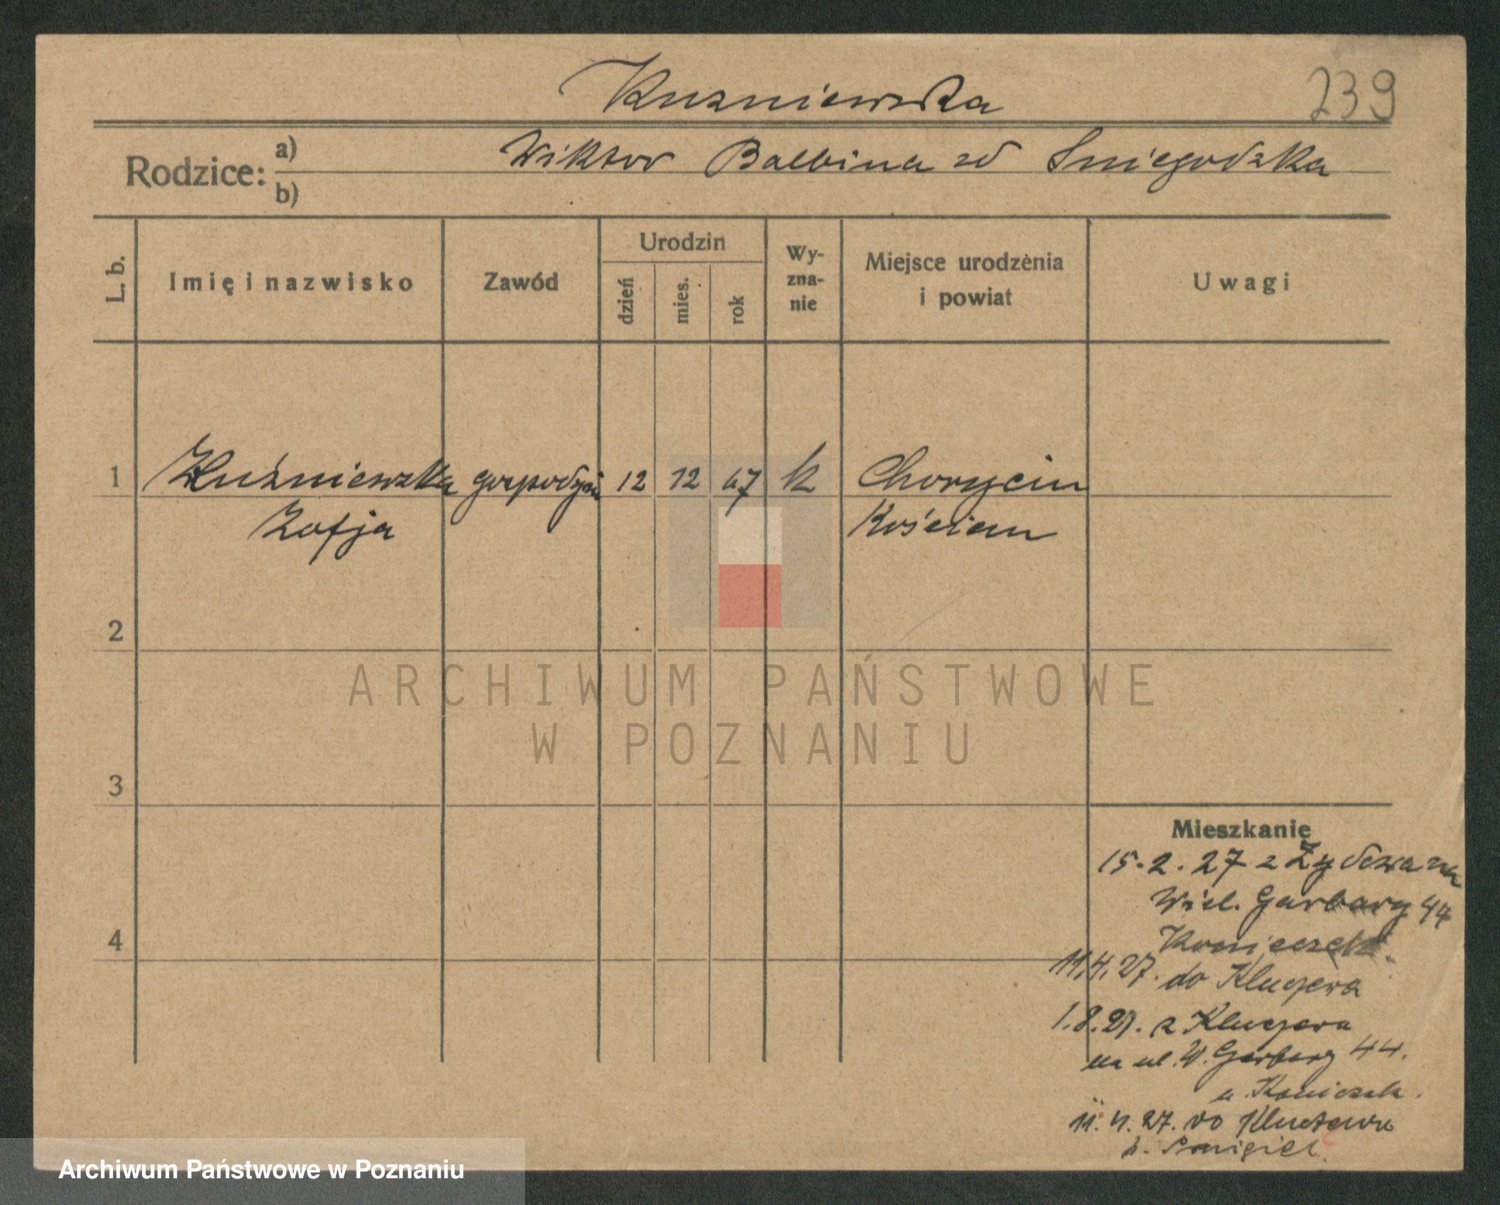 Kuzniewska
239
Rodzice: a) b)
Wiktor Balbina zd Sniegodzka
L. b.
Imię i nazwisko
Zawód
Urodzin
dzień
mies.
rok
Wy-
zna-
nie
Miejsce urodzenia
i powiat
Uwagi
1 Kuźniewska gospodyni 12 12 67 k Chorycin
Zofja Kościan
2
3
4
ARCHIWUM PAŃSTWOWE
W POZNANIU
Mieszkanie
15.2.27 z na
Wiel. Garbary 44
Konieczek.
11.4.27. do Kluczewa
1.8.27. z Kluczewa
na ul. W. Garbary 44.
u Konieczek.
11.27. do Kluczewa
p. Śmigiel.
Archiwum Państwowe w Poznaniu